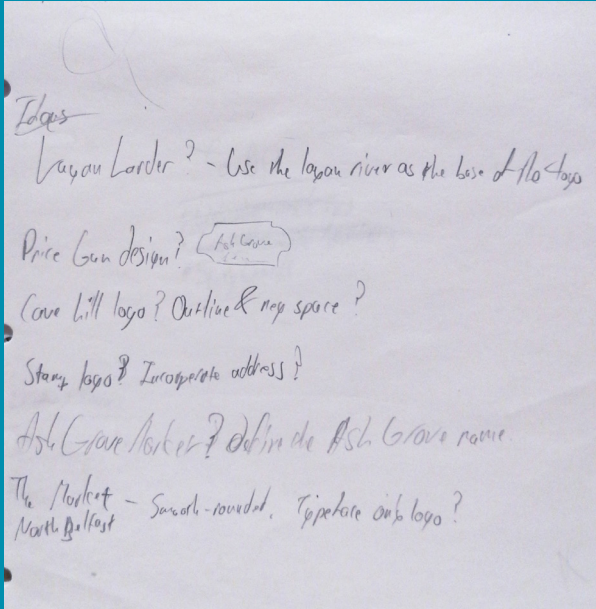 Ideas
Lagan Larder? - Use the lagan river as the base of the logo
Price Gun design? Ash Grove
Cave hill logo? Outline & neg space?
Stamp logo? Incorporate address?
Ash Grove Market? define the Ash Grove name.
The Market - Smooth-rounded. Typeface only logo?
North Belfast